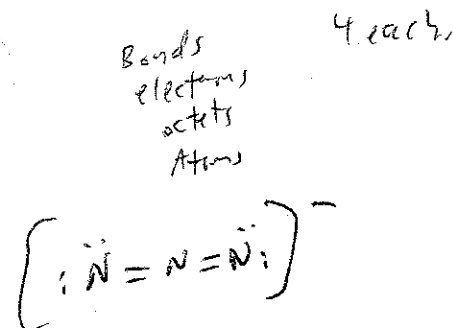 4 each.
Bonds
electrons
octets
Atoms
[:N̈=N=N̈:]⁻